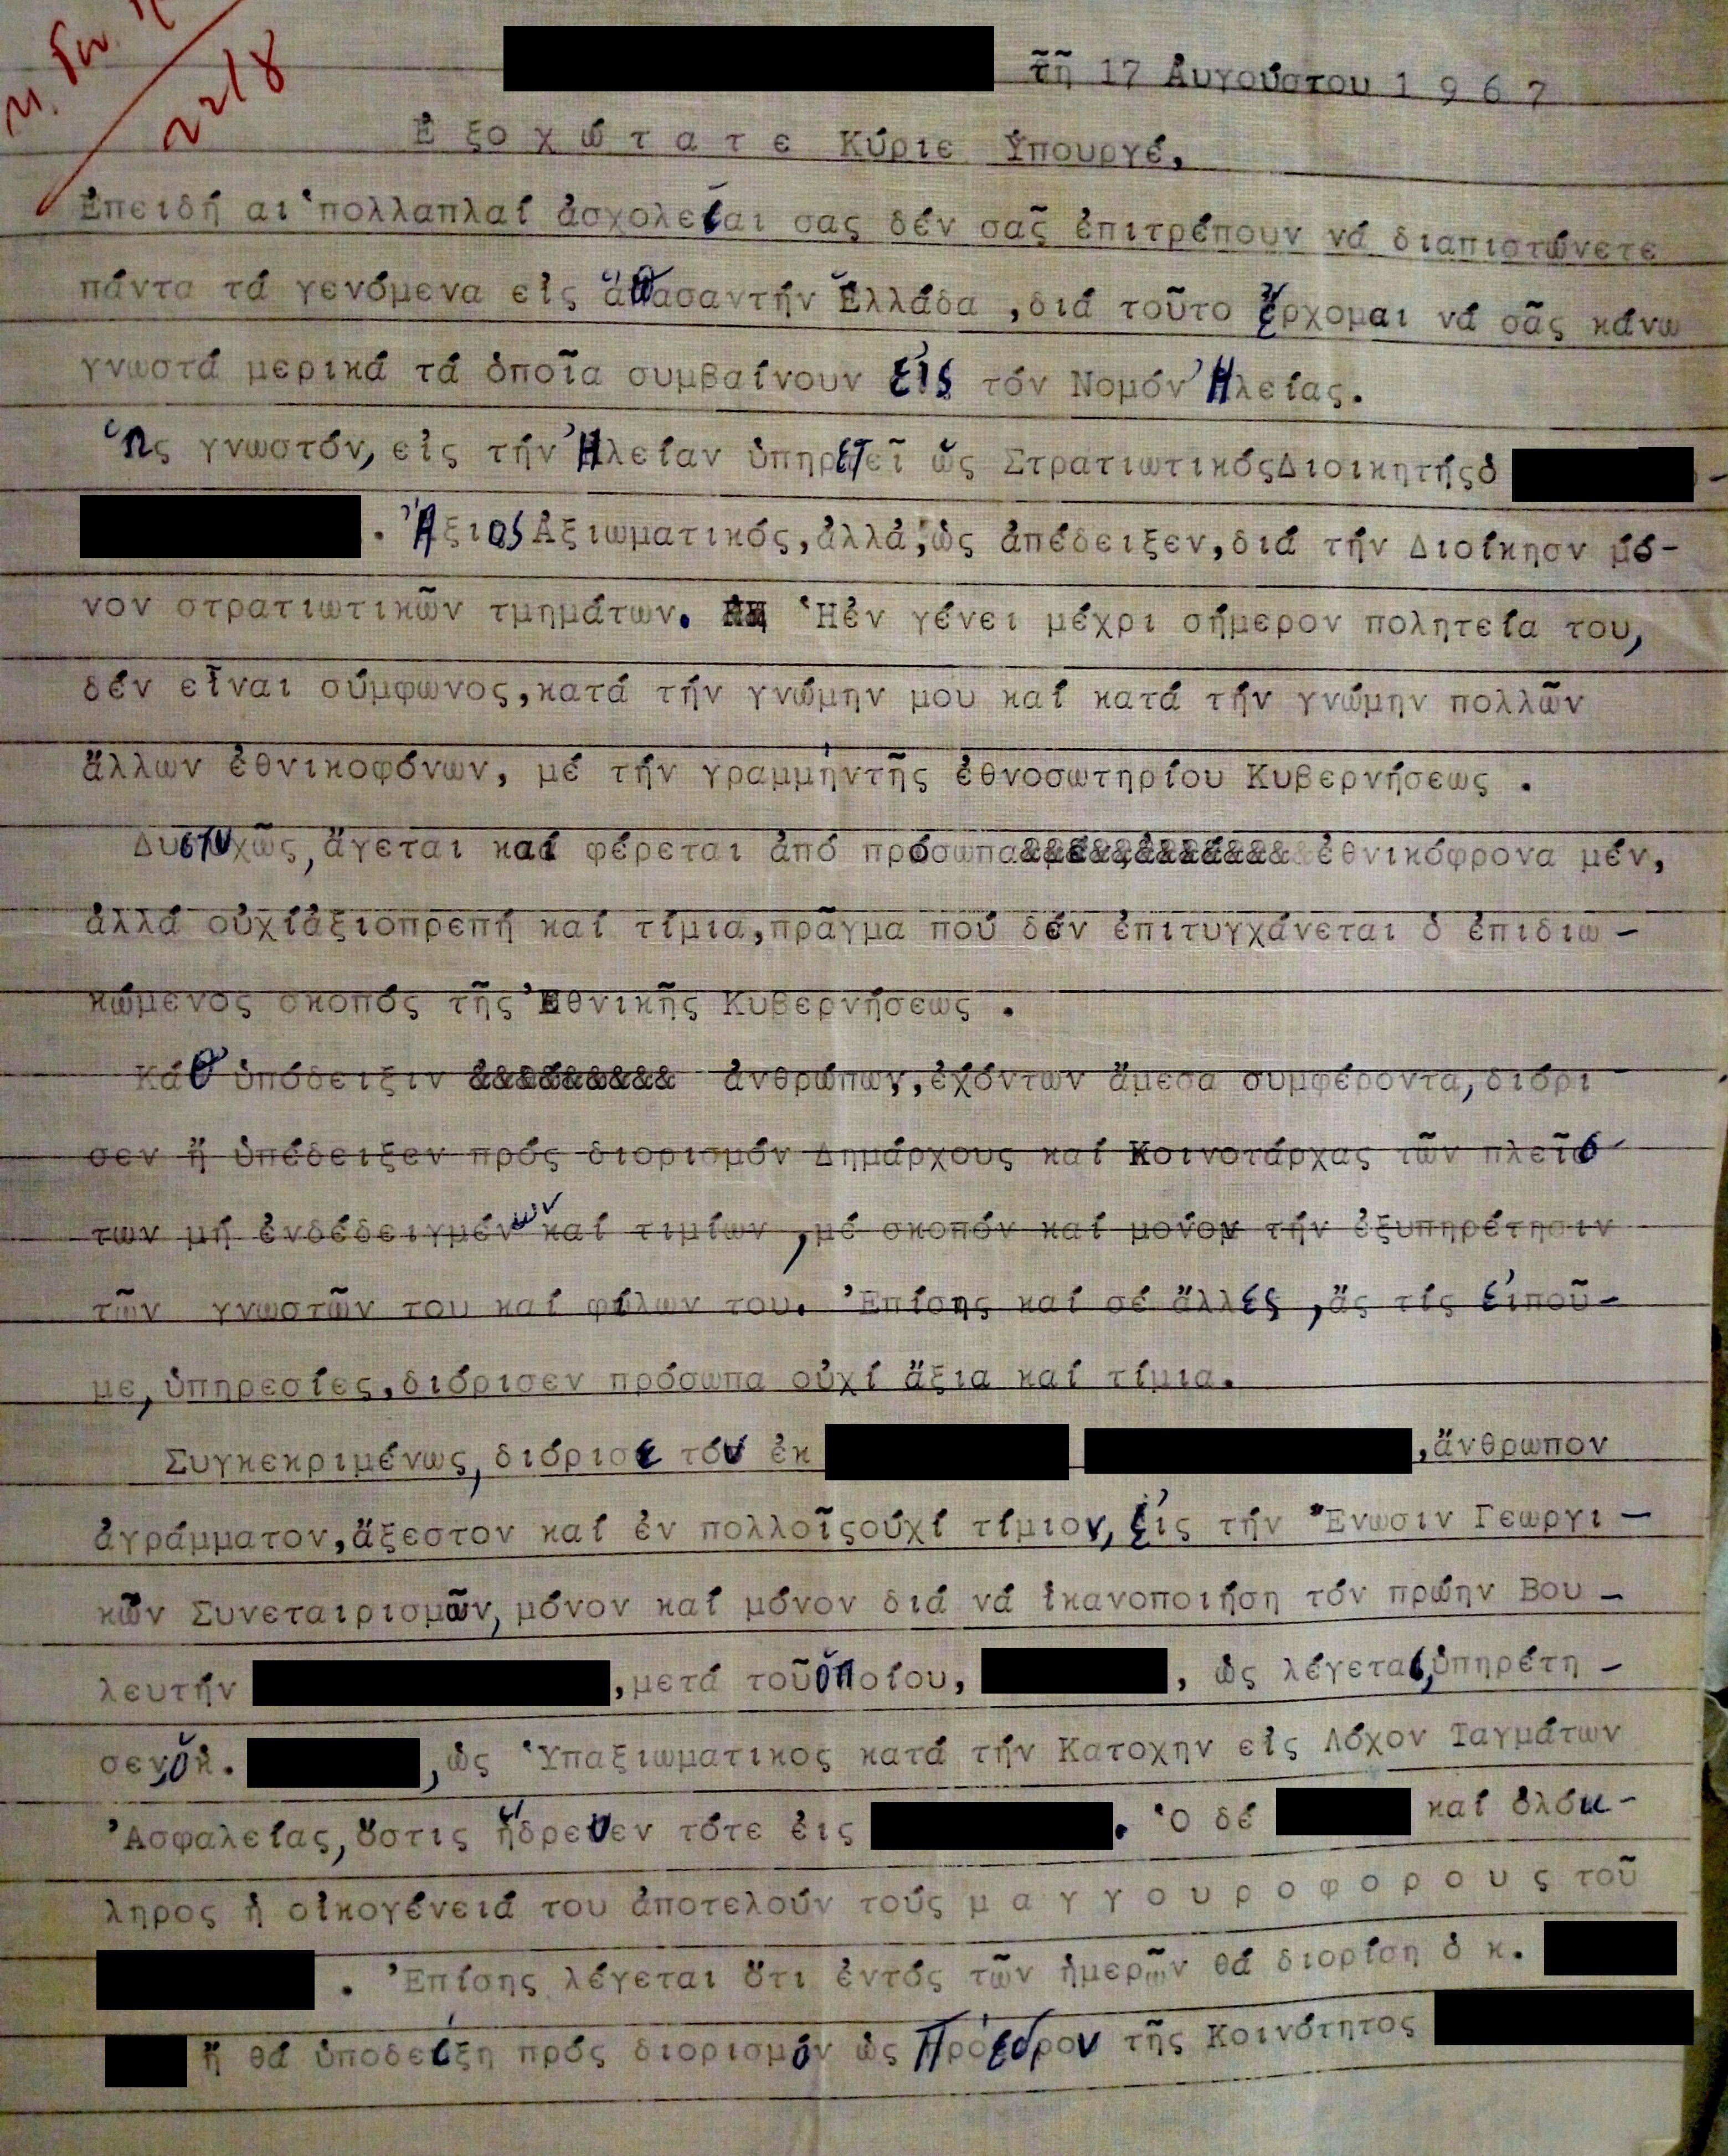 22/8
τῇ 17 Αὐγούστου 1 9 6 7
Ἐ ξ ο χ ώ τ α τ ε Κύριε Ὑπουργέ,
Ἐπειδή αι ̔πολλαπλαί ἀσχολεῖαι σας δέν σᾶς ἐπιτρέπουν νά διαπιστώνετε
πάντα τά γενόμενα εἰς ἅπασαντήν Ἑλλάδα ,διά τοῦτο ἔρχομαι νά σᾶς κάνω
γνωστά μερικά τά ὁποῖα συμβαίνουν εἰς τόν Νομόν Ἠλείας.
Ὡς γνωστόν, εἰς τήν Ἠλείαν ὑπηρετεῖ ὥς ΣτρατιωτικόςΔιοικητήςὁ -
. Ἄξιος Ἀξιωματικός,ἀλλά,ὡς ἀπέδειξεν,διά τήν Διοίκησν μό-
νον στρατιωτικῶν τμημάτων. Ἡἐν γένει μέχρι σήμερον πολητεία του,
δέν εἶναι σύμφωνος,κατά τήν γνώμην μου καί κατά τήν γνώμην πολλῶν
ἄλλων ἐθνικοφόνων, μέ τήν γραμμήντῆς ἐθνοσωτηρίου Κυβερνήσεως .
Δυστυχῶς,ἄγεται καί φέρεται ἀπό πρόσωπα ἐθνικόφρονα μέν,
ἀλλά οὐχίἀξιοπρεπή καί τίμια,πρᾶγμα πού δέν ἐπιτυγχάνεται ὁ ἐπιδιω -
κώμενος σκοπός τῆς Ἐθνικῆς Κυβερνήσεως .
Κάθ ὑπόδειξιν ἀνθρώπων,ἐχόντων ἄμεσα συμφέροντα,διόρι -
σεν ἤ ὑπέδειξεν πρός διορισμόν Δημάρχους καί Κοινοτάρχας τῶν πλεῖσ-
των μή ἐνδέδειγμένων καί τιμίων ,μέ σκοπόν καί μονον τήν ἐξυπηρέτησιν
τῶν γνωστῶν του καί φίλων του. Ἐπίσης καί σέ ἄλλες ,ἄς τίς εἰποῦ-
με,ὑπηρεσίες,διόρισεν πρόσωπα οὐχί ἄξια καί τίμια.
Συγκεκριμένως, διόρισε τόν ἐκ ,ἄνθρωπον
ἀγράμματον,ἄξεστον καί ἐν πολλοῖςοὐχί τίμιον, εἰς τήν Ἕνωσιν Γεωργι -
κῶν Συνεταιρισμῶν, μόνον καί μόνον διά νά ἱκανοποιήση τόν πρώην Βου -
λευτήν ,μετά τοῦὁποίου, , ὡς λέγεται,ὑπηρέτη -
σεν,ὁ κ. ,ὡς Ὑπαξιωματικος κατά τήν Κατοχην εἰς Λόχον Ταγμάτων
Ἀσφαλείας,ὅστις ἥδρευεν τότε ἐις . Ὁ δέ καί ὁλόκ-
ληρος ἡ οἰκογένειά του ἀποτελούν τούς μ α γ γ ο υ ρ ο φ ο ρ ο υ ς τοῦ
. Ἐπίσης λέγεται ὅτι ἐντός τῶν ἡμερῶν θά διορίση ὁ κ.
ἤ θά ὑποδείξη πρός διορισμόν ὡς Πρόεδρον τῆς Κοινότητος